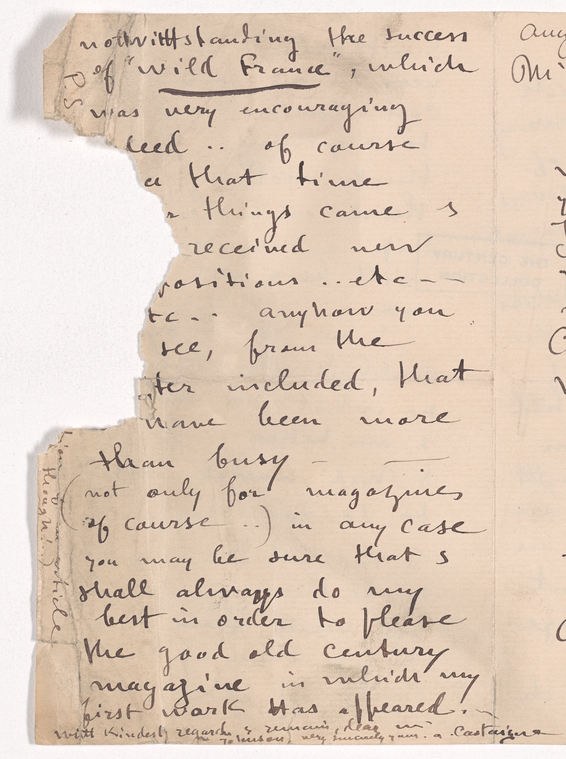 notwithstanding the success
of "wild France", which
was very encouraging
deed .. of course
a that time
things came s
received new
ositions .. etc --
tc .. anyhow you
see, from the
ter included, that
have been more
than busy - -
not only for magazines
(of course ..) in any case
you may be sure that s
shall always do my
best in order to please
the good old century
magazine in which my
first work has appeared. -
with kindest regards, s remain, dear mr
Johnson, very sincerely yours. a. Castaigne
P.S
article
though!
any